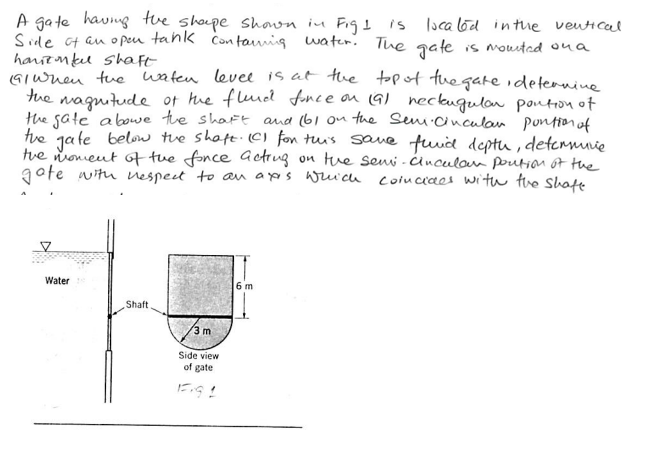 A gate having the shape shown in Fig 1 is located in the vertical
Side of an open tank containing water. The gate is mounted on a
horizontal shaft
(a) When the water level is at the top of the gate, determine
the magnitude of the fluid force on (a) rectangular portion of
the gate above the shaft and (b) on the Semi-circular portion of
the gate below the shaft. (c) for this same fluid depth, determine
the moment of the force acting on the semi-circular portion of the
gate with respect to an axis which coincides with the shaft
Water
6 m
Shaft
3 m
Side view
of gate
Fig 1